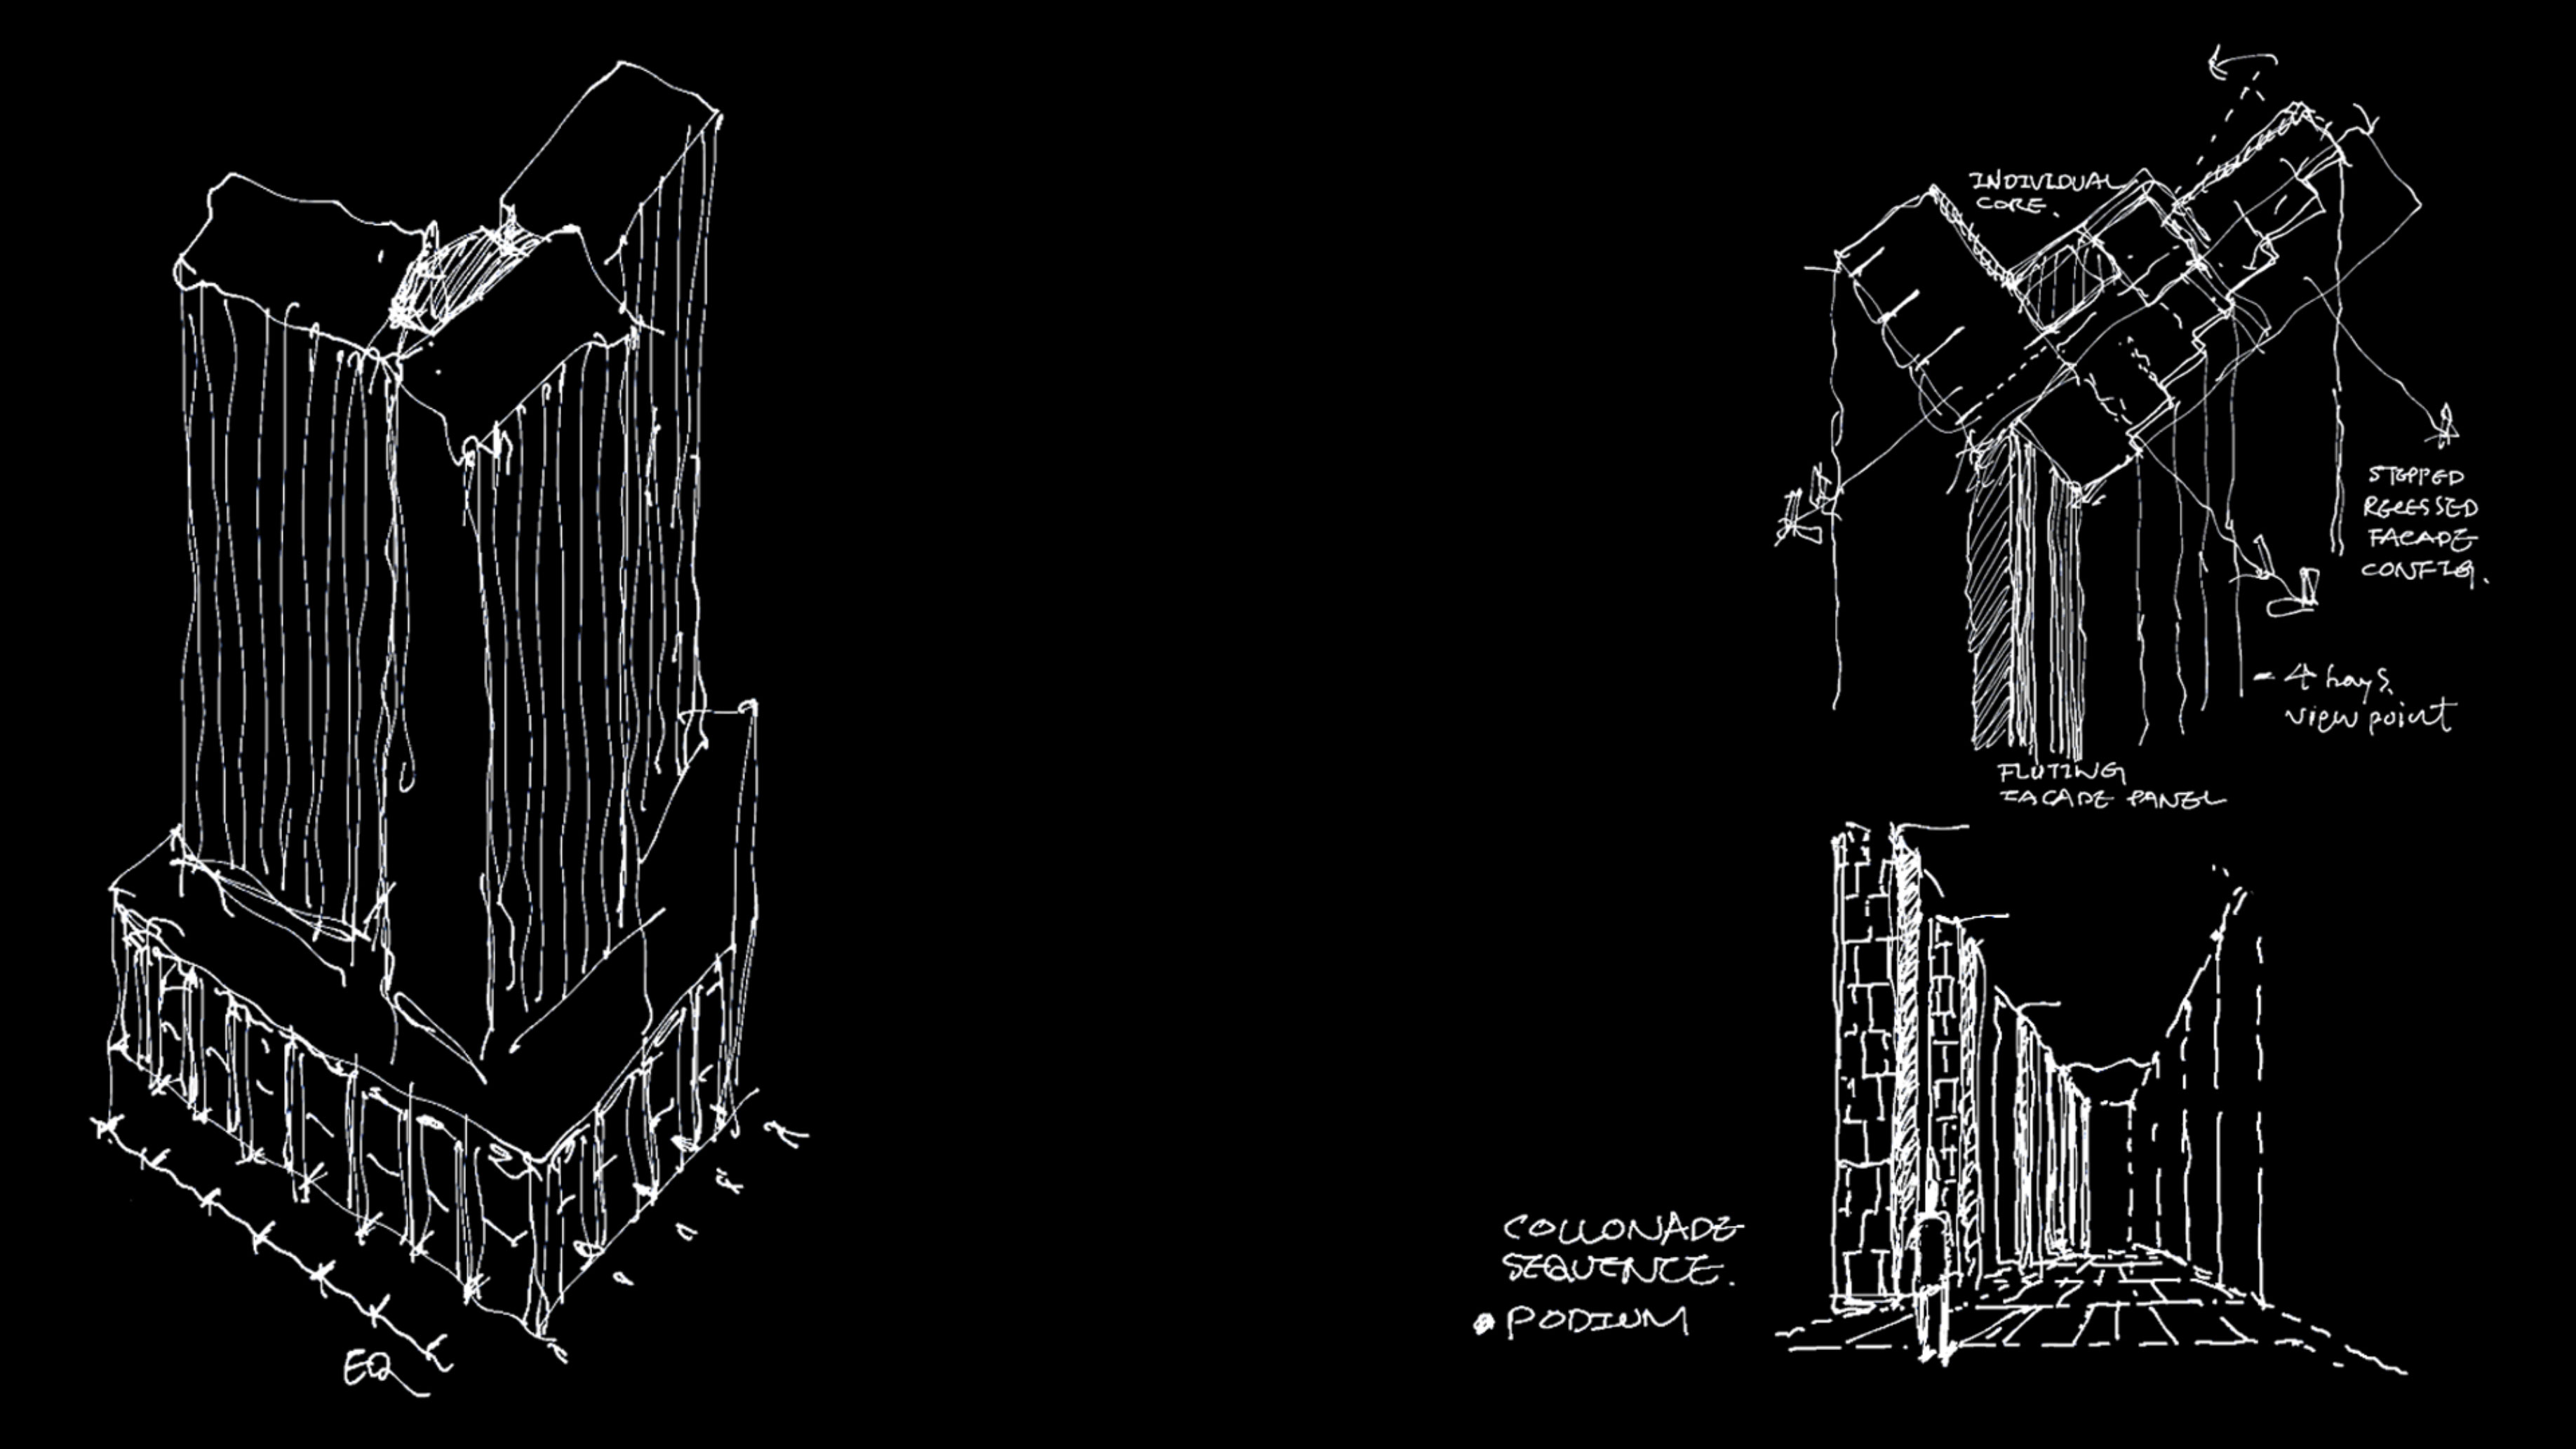 INDIVIDUAL
CORE.
STEPPED
RECESSED
FACADE
CONFIG.
- 4 bays
view point
FLUTING
FACADE PANEL
COLLONADE
SEQUENCE.
• PODIUM
EQ